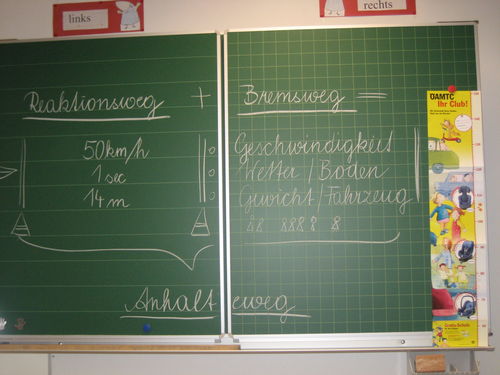 links
rechts
Reaktionsweg + Bremsweg =
50km/h
1 sec
14 m
Geschwindigkeit
Wetter / Boden
Gewicht / Fahrzeug
Anhalteweg
ÖAMTC
Ihr Club!